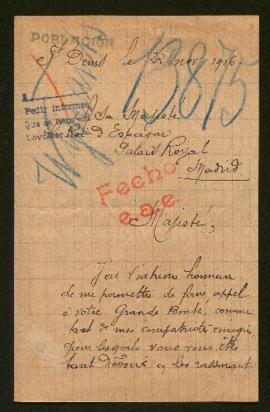 POBLACIÓN
St Denis le 22 nov. 1916
13875
Pedir informes
A Sa Majesté
Roi d'Espagne
Palais Royal
Madrid
Fecho
e.a.e.
Majesté,
J'ai l'extrême honneur
de me permettre de faire appel
à votre Grande Bonté, comme
tant de mes compatriotes
pour lesquels vous vous êtes
tant dévoué en les